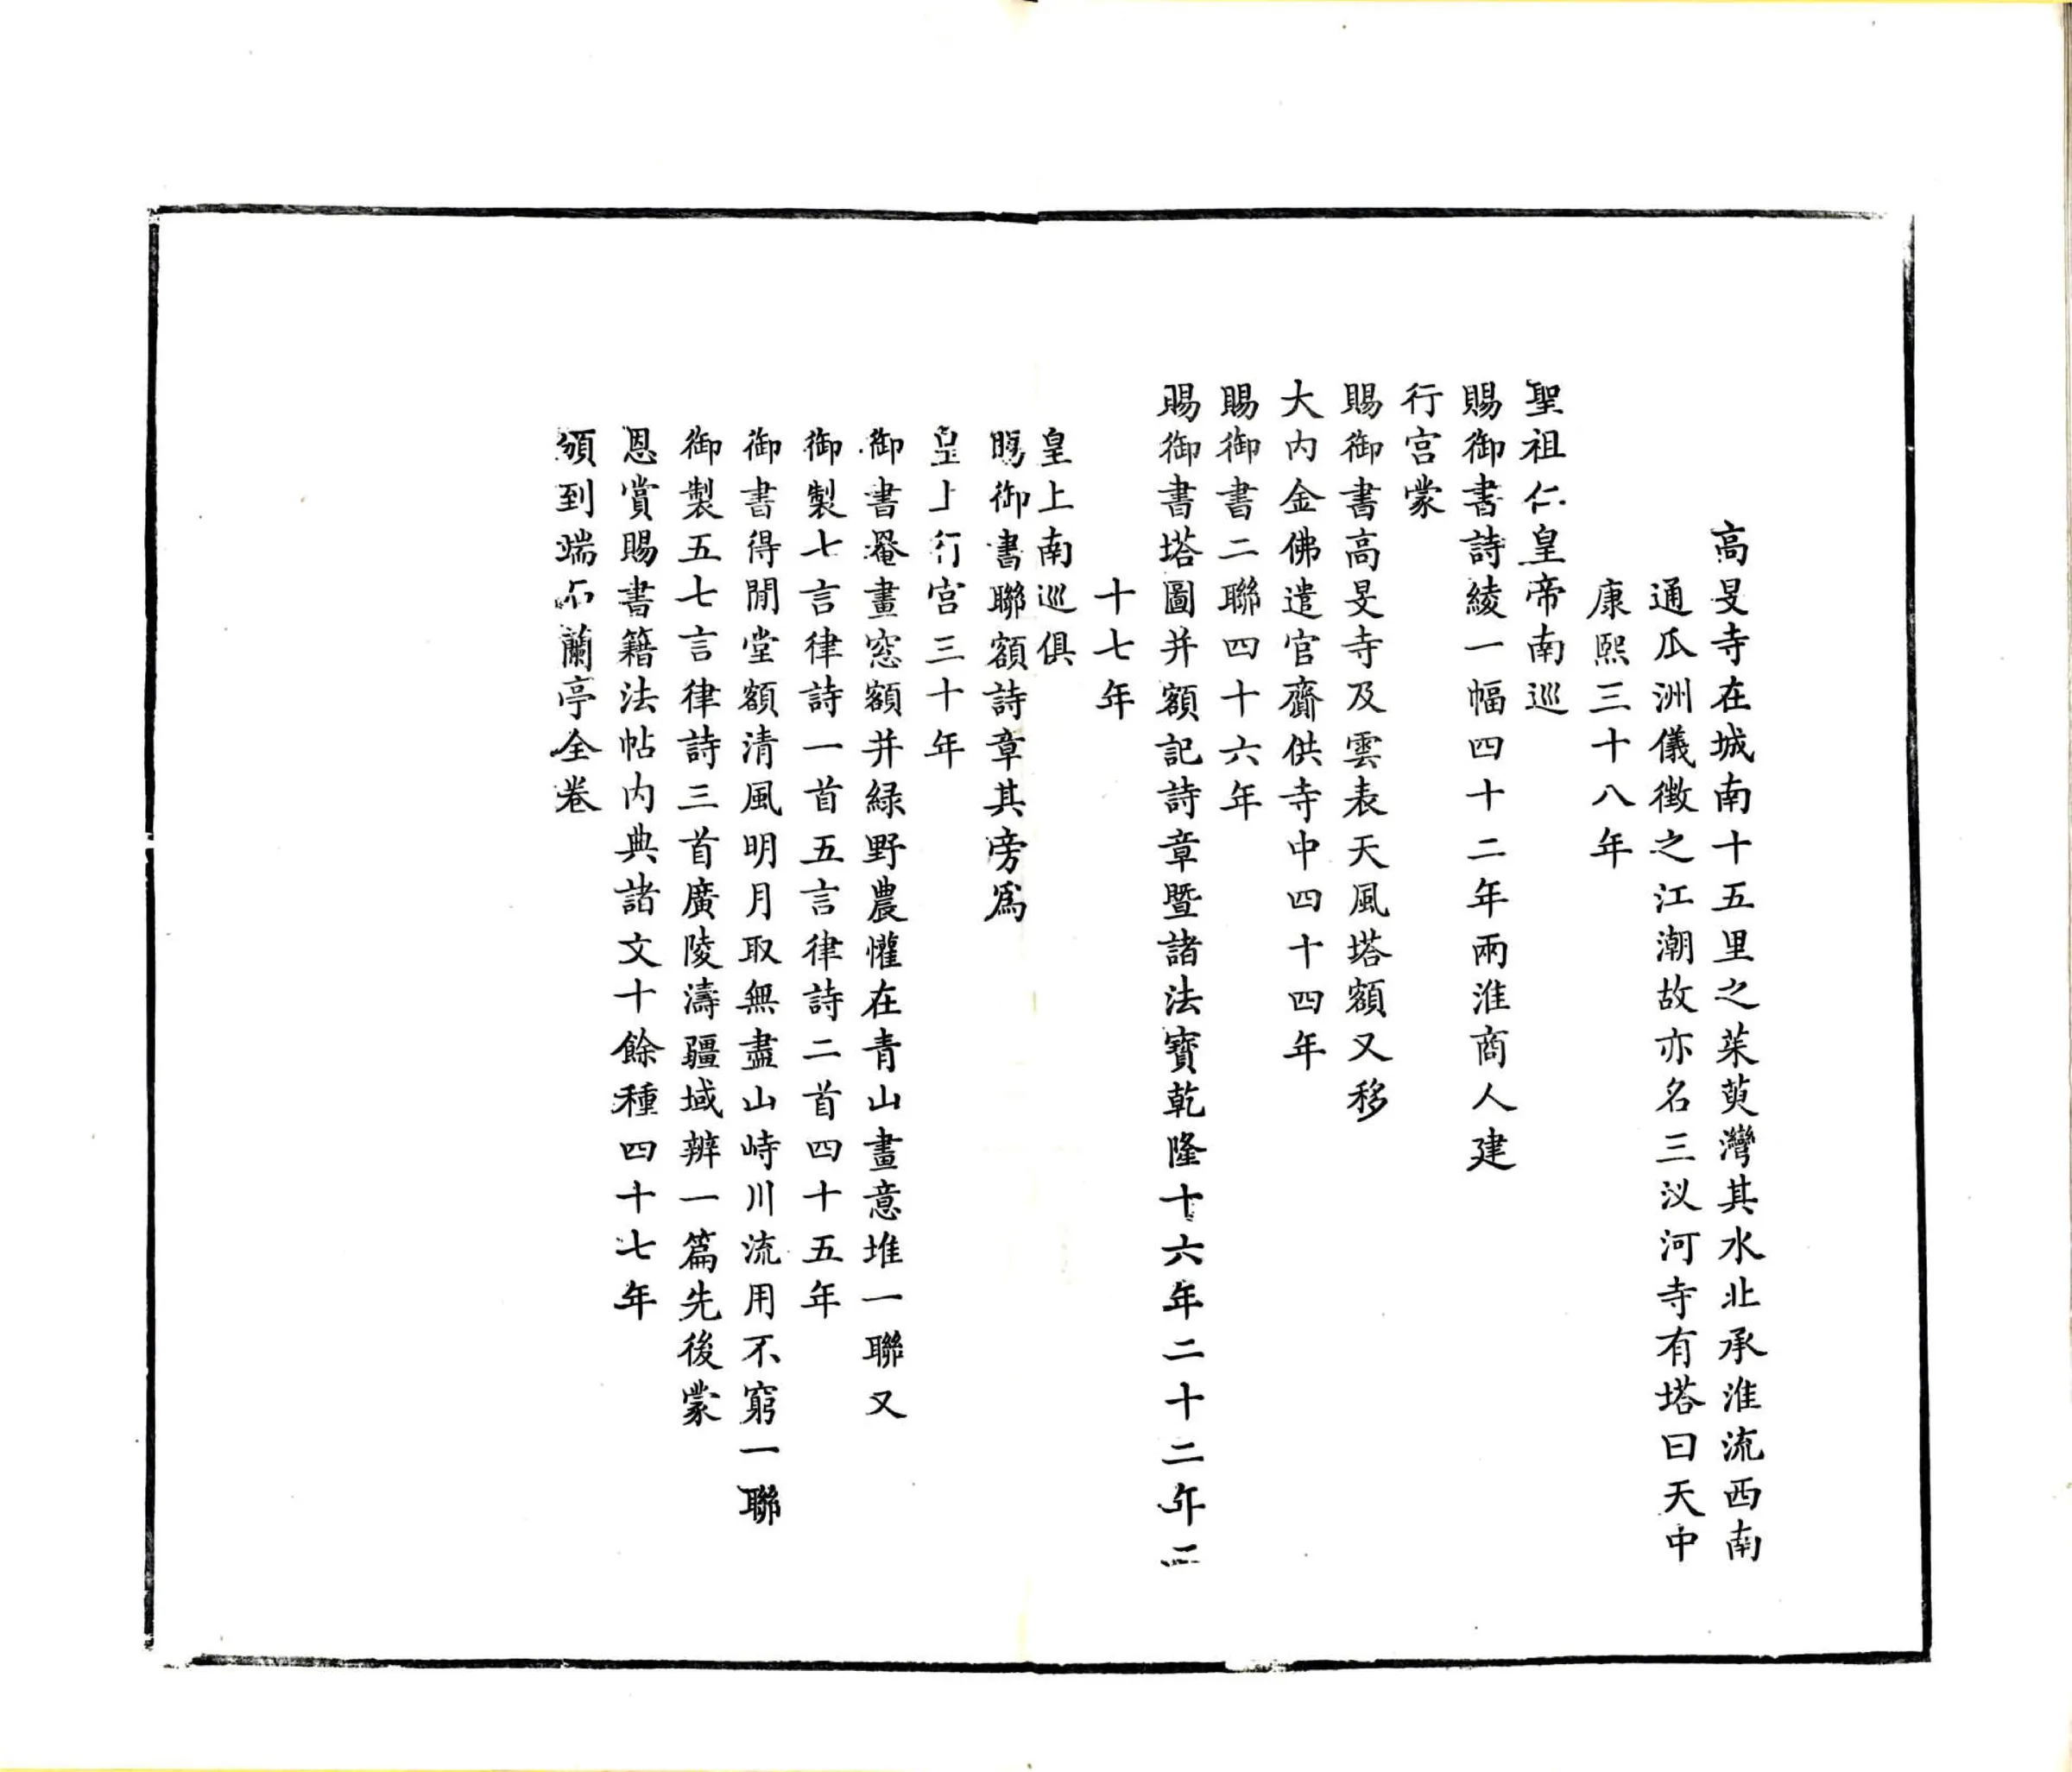 高旻寺在城南十五里之茱萸灣其水北承淮流西南
通瓜洲儀徵之江潮故亦名三汊河寺有塔曰天中
康熙三十八年
聖祖仁皇帝南巡
賜御書詩綾一幅四十二年兩淮商人建
行宮蒙
賜御書高旻寺及雲表天風塔額又移
大內金佛遣官齎供寺中四十四年
賜御書二聯四十六年
賜御書塔圖并額記詩章暨諸法寶乾隆十六年二十二年二
十七年
皇上南巡俱
賜御書聯額詩章其旁爲
皇上行宮三十年
御書罨畫窓額并緑野農懽在青山畫意堆一聯又
御製七言律詩一首五言律詩二首四十五年
御書得閒堂額清風明月取無盡山峙川流用不窮一聯
御製五七言律詩三首廣陵濤疆域辨一篇先後蒙
恩賞賜書籍法帖內典諸文十餘種四十七年
頒到端石蘭亭全卷